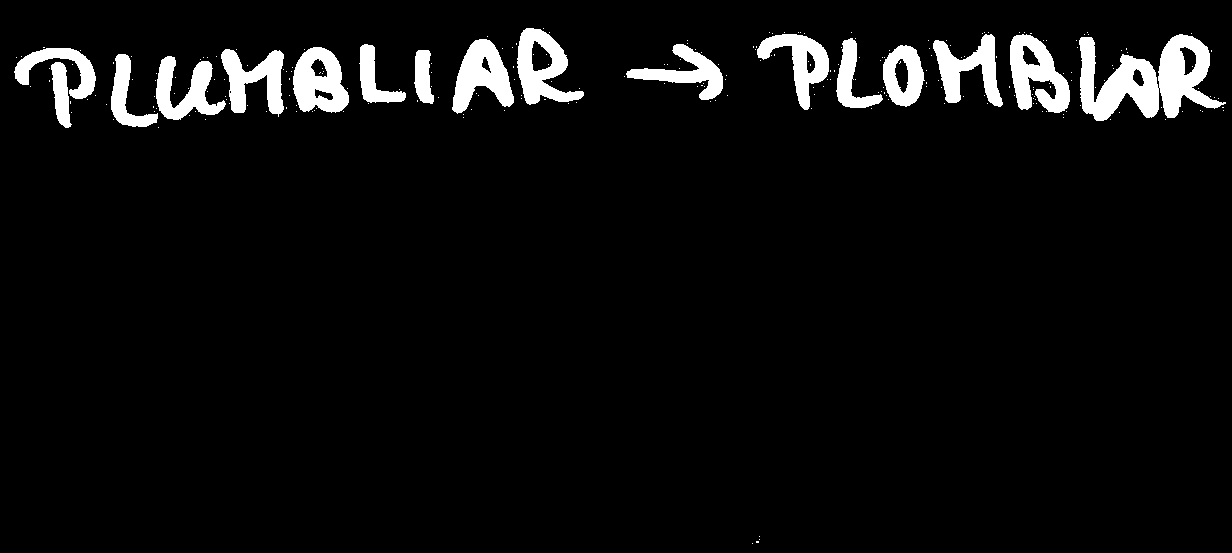 PLUMBLIAR → PLOMBIAR